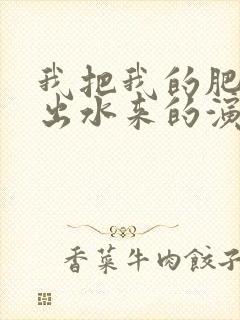 我把我的肥
出水来的演
香菜牛肉餃子